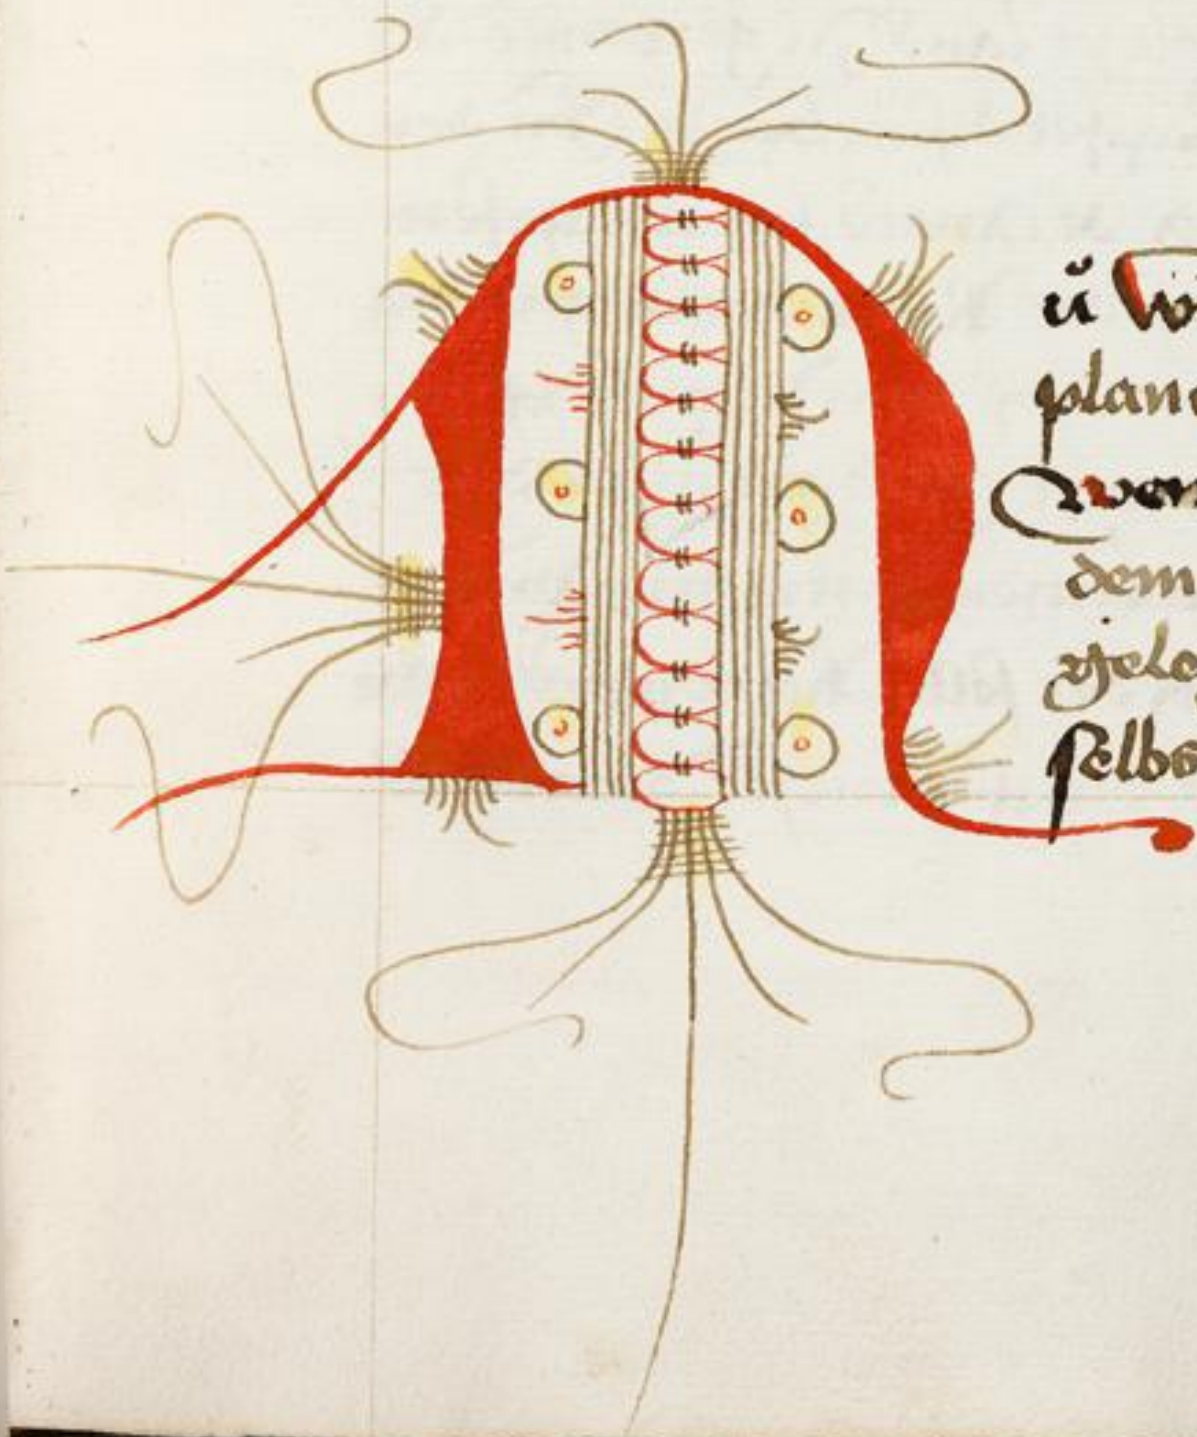 N
ŭ wi
plane
wen
dem
selbe